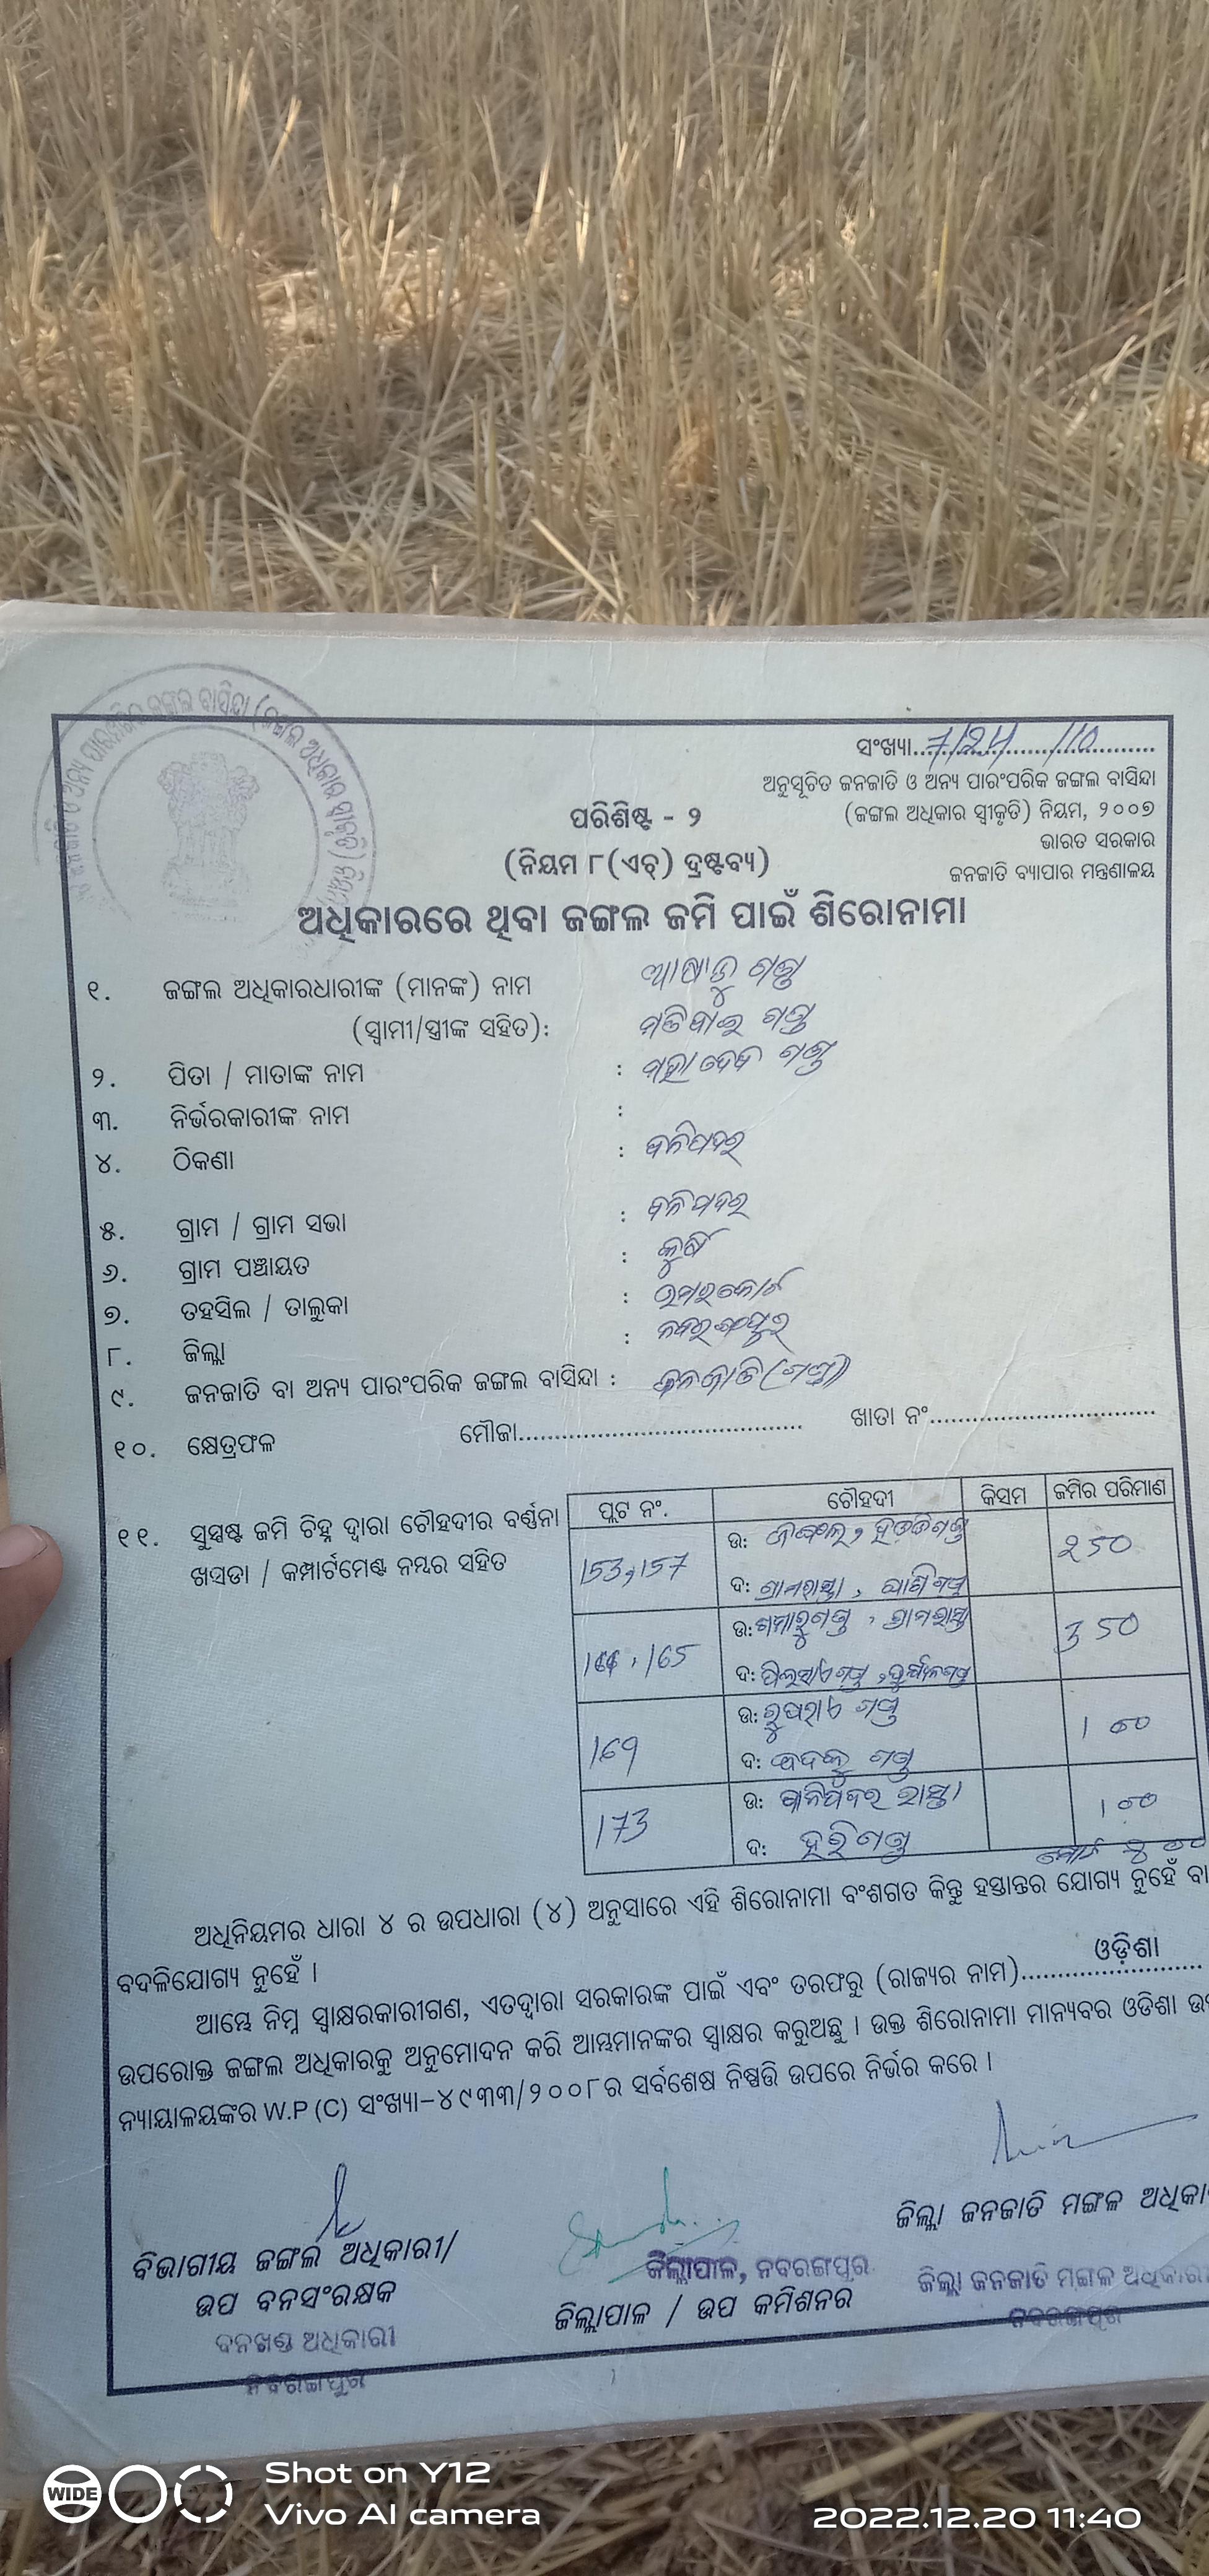 ସଂଖ୍ୟା 7124/10
ଅନୁସୂଚିତ ଜନଜାତି ଓ ଅନ୍ୟ ପାରଂପରିକ ଜଙ୍ଗଲ ବାସିନ୍ଦା
(ଜଙ୍ଗଲ ଅଧିକାର ସ୍ୱୀକୃତି) ନିୟମ, ୨୦୦୭
ଭାରତ ସରକାର
ଜନଜାତି ବ୍ୟାପାର ମନ୍ତ୍ରଣାଳୟ
ପରିଶିଷ୍ଟ - ୨
(ନିୟମ ୮(ଏଚ୍) ଦ୍ରଷ୍ଟବ୍ୟ)
ଅଧିକାରରେ ଥିବା ଜଙ୍ଗଲ ଜମି ପାଇଁ ଶିରୋନାମା
୧. ଜଙ୍ଗଲ ଅଧିକାରଧାରୀଙ୍କ (ମାନଙ୍କ) ନାମ ଆଷାଡୁ ଗଣ୍ଡ
(ସ୍ୱାମୀ/ସ୍ତ୍ରୀଙ୍କ ସହିତ): ଗଣ୍ଡ
୨. ପିତା / ମାତାଙ୍କ ନାମ : ମହାଦେବ ଗଣ୍ଡ
୩. ନିର୍ଭରକାରୀଙ୍କ ନାମ :
୪. ଠିକଣା : ବଳିପଦର
୫. ଗ୍ରାମ / ଗ୍ରାମ ସଭା : ବଳିପଦର
୬. ଗ୍ରାମ ପଞ୍ଚାୟତ : କୁର୍ଷି
୭. ତହସିଲ / ତାଲୁକା : ଉମରକୋଟ
୮. ଜିଲ୍ଲା : ନବରଙ୍ଗପୁର
୯. ଜନଜାତି ବା ଅନ୍ୟ ପାରଂପରିକ ଜଙ୍ଗଲ ବାସିନ୍ଦା : ଜନଜାତି (ଗଣ୍ଡ)
୧୦. କ୍ଷେତ୍ରଫଳ ମୌଜା.......... ଖାତା ନଂ..........
୧୧. ସୁସ୍ପଷ୍ଟ ଜମି ଚିହ୍ନ ଦ୍ୱାରା ଚୌହଦୀର ବର୍ଣ୍ଣନା
ଖସଡା / କମ୍ପାର୍ଟମେଣ୍ଟ ନମ୍ବର ସହିତ
ପ୍ଲଟ ନଂ. ଚୌହଦୀ କିସମ ଜମିର ପରିମାଣ
153,157 ଉ: ଜଙ୍ଗଲ, ଗଣ୍ଡ 250
ଦ: ଗ୍ରାମରାସ୍ତା, ଗଣ୍ଡ
165 ଉ: ଗଣ୍ଡ, ଗ୍ରାମରାସ୍ତା 350
ଦ: ଗଣ୍ଡ
169 ଉ: ରୁପରାଏ ଗଣ୍ଡ 100
ଦ: ଗଣ୍ଡ
173 ଉ: ବଳିପଦର ରାସ୍ତା 100
ଦ: ହରିଗଣ୍ଡ
ମୋଟ
ଅଧିନିୟମର ଧାରା ୪ ର ଉପଧାରା (୪) ଅନୁସାରେ ଏହି ଶିରୋନାମା ବଂଶଗତ କିନ୍ତୁ ହସ୍ତାନ୍ତର ଯୋଗ୍ୟ ନୁହେଁ ବା
ବଦଳିଯୋଗ୍ୟ ନୁହେଁ ।
ଆମ୍ଭେ ନିମ୍ନ ସ୍ୱାକ୍ଷରକାରୀଗଣ, ଏତଦ୍ୱାରା ସରକାରଙ୍କ ପାଇଁ ଏବଂ ତରଫରୁ (ରାଜ୍ୟର ନାମ) ଓଡ଼ିଶା
ଉପରୋକ୍ତ ଜଙ୍ଗଲ ଅଧିକାରକୁ ଅନୁମୋଦନ କରି ଆମ୍ଭମାନଙ୍କର ସ୍ୱାକ୍ଷର କରୁଅଛୁ । ଉକ୍ତ ଶିରୋନାମା ମାନ୍ୟବର ଓଡିଶା
ନ୍ୟାୟାଳୟଙ୍କର W.P (C) ସଂଖ୍ୟା-୪୯୩୩/୨୦୦୮ର ସର୍ବଶେଷ ନିଷ୍ପତ୍ତି ଉପରେ ନିର୍ଭର କରେ ।
ଜିଲ୍ଲା ଜନଜାତି ମଙ୍ଗଳ
ବିଭାଗୀୟ ଜଙ୍ଗଲ ଅଧିକାରୀ/
ଉପ ବନସଂରକ୍ଷକ
ବନଖଣ୍ଡ ଅଧିକାରୀ
ନବରଙ୍ଗପୁର
ଜିଲ୍ଲାପାଳ, ନବରଙ୍ଗପୁର
ଜିଲ୍ଲାପାଳ / ଉପ କମିଶନର
ଜିଲ୍ଲା ଜନଜାତି ମଙ୍ଗଳ ଅଧିକାରୀ
ନବରଙ୍ଗପୁର
WIDE
Shot on Y12
Vivo AI camera
2022.12.20 11:40